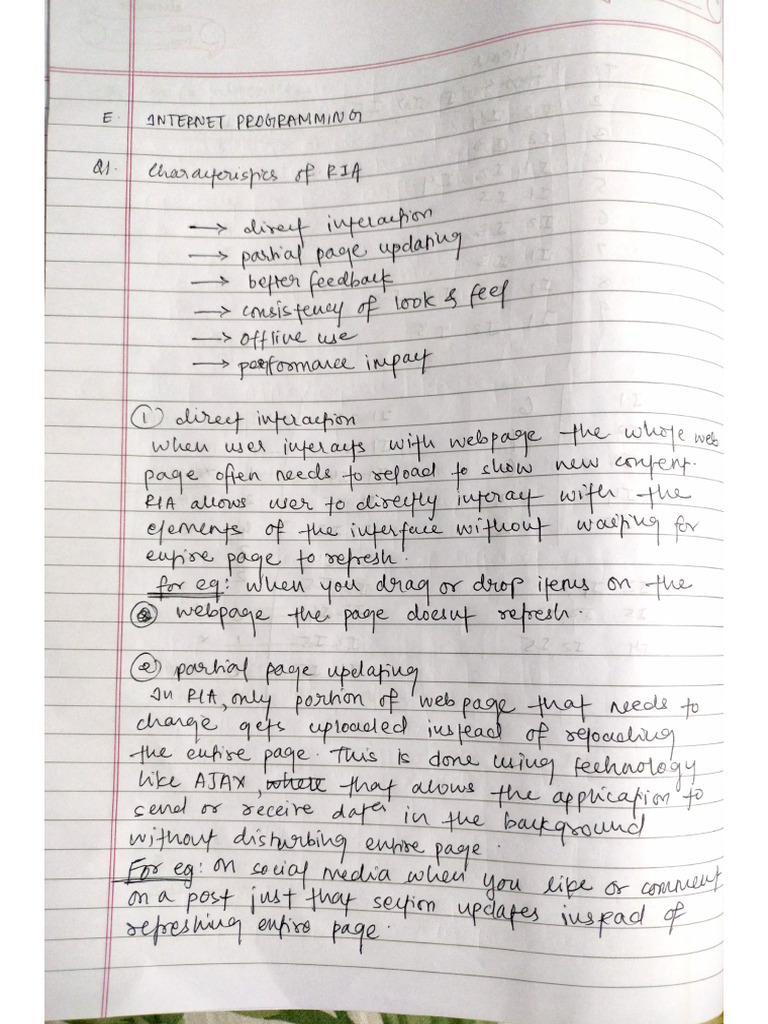 E. INTERNET PROGRAMMING
Q1. Characteristics of RIA
→ direct interaction
→ partial page updating
→ better feedback
→ consistency of look & feel
→ offline use
→ performance impact
① direct interaction
When user interacts with webpage the whole web
page often needs to reload to show new content.
RIA allows user to directly interact with the
elements of the interface without waiting for
entire page to refresh.
for eg: when you drag or drop items on the
webpage the page doesnt refresh.
② partial page updating
In RIA, only portion of web page that needs to
change gets uploaded instead of reloading
the entire page. This is done using technology
like AJAX, where that allows the application to
send or receive data in the background
without disturbing entire page.
For eg: on social media when you like or comment
on a post just that section updates instead of
refreshing entire page.